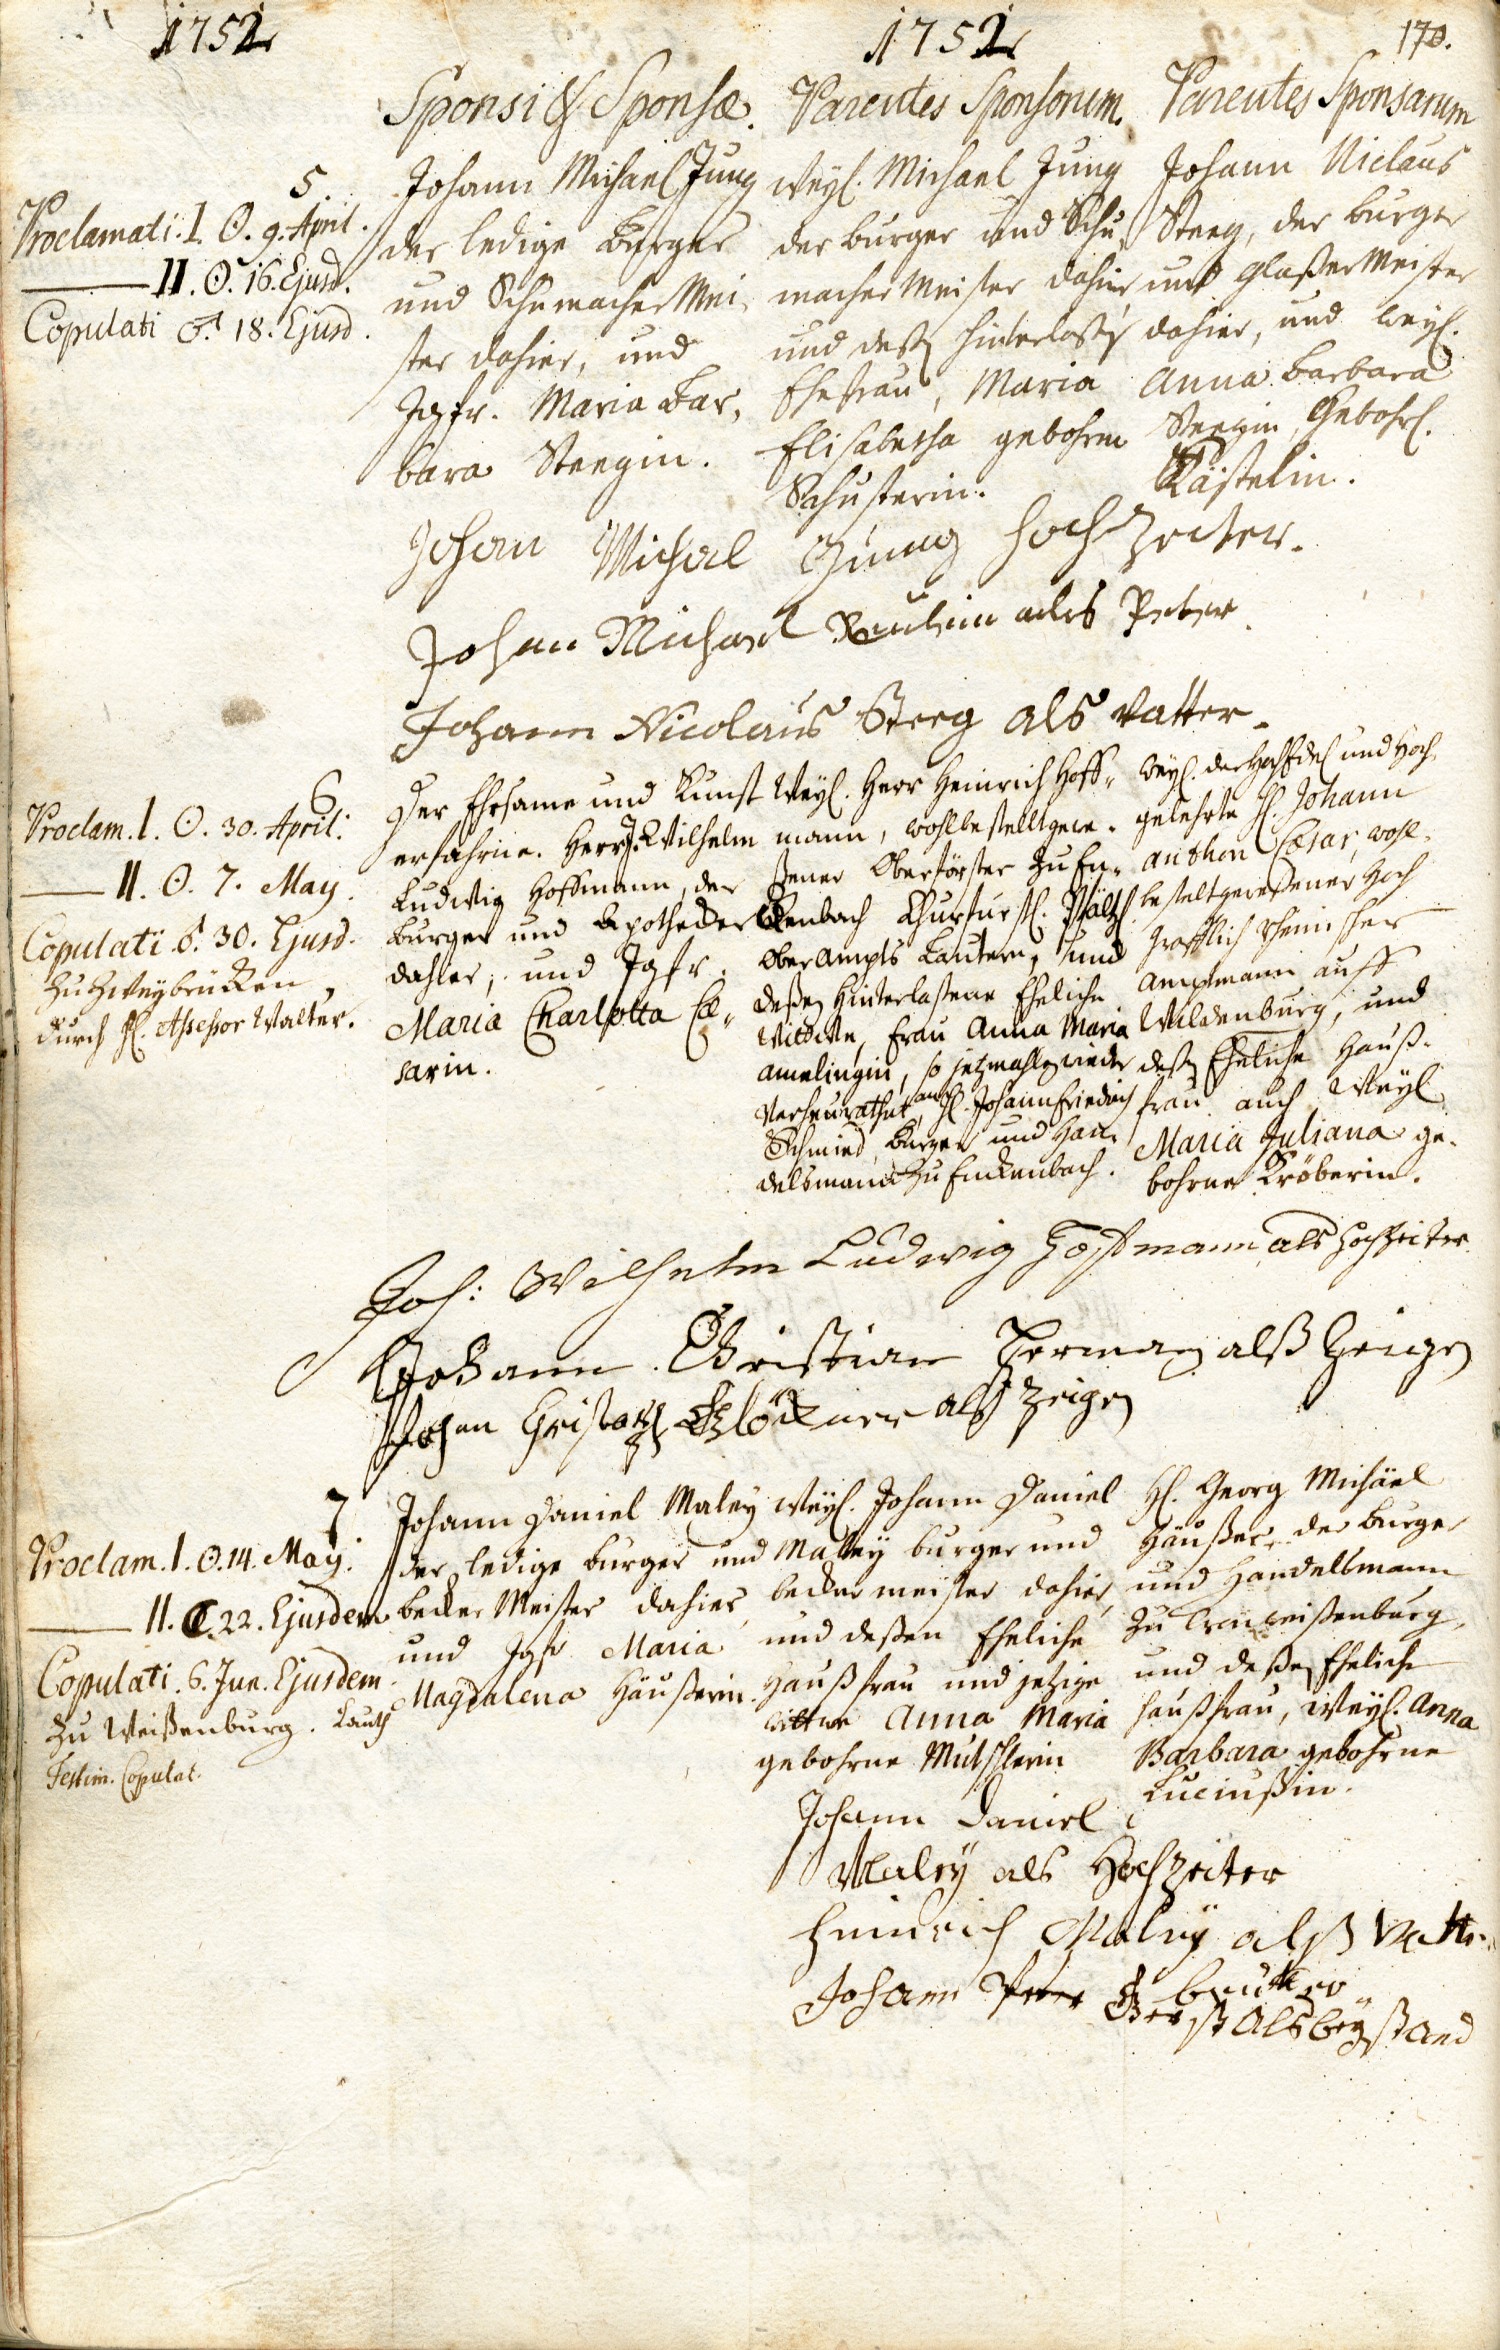 1752
1752
170.
Sponsi & Sponsæ.
Parentes Sponsorum.
Parentes Sponsarum
5.
Proclamati. I. ☉. 9. April.
II. ☉. 16. Ejusd.
Copulati ♂. 18. Ejusd.
Johann Michael Jung
der ledige Burger
und Schumacher Mei-
ster dahier, und
Jgfr. Maria Bar-
bara Steegin.
Weyl. Michael Jung
der burger und Schu-
macher Meister dahier
und deßen hinterlaßene
Ehefrau, Maria
Elisabetha gebohrne
Schusterin.
Johann Niclaus
Steeg, der burger
und Glaßer Meister
dahier, und weyl.
Anna Barbara
Steegin, Gebohrl.
Kästelin.
Johan Michael Jung Hochzeiter.
Johan Michael als Peter
Johann Nicolaus Steeg als Vatter.
6
Proclam. I. ☉. 30. April.
II. ☉. 7. May.
Copulati 30. Ejusd.
zu Zweybrücken,
durch H. Assessor Walter.
Der Ehrsame und Kunst
erfahrne Herr J. Wilhelm
Ludwig Hoffmann, der
Burger und Apothecker
dahier, und Jgfr.
Maria Charlotta Cæ-
sarin.
Weyl. Herr Heinrich Hoff-
mann, wohlbestelltgewe-
ßener Oberförster zu En-
kenbach Churfürstl. Pfältz.
Oberampts Lautern, und
deßen Hinterlaßene Eheliche
Wittwe, Frau Anna Maria
Amelingin, so jetzmahlen wieder
verheurathet, an H. Johann Friedrich
Schmied, Burger und Han-
delsmann zu Enckenbach.
Weyl. der Hochedel und Hoch-
gelehrte H. Johann
Anthon Cæsar, wohl-
bestelltgeweßener Hoch
Gräfflich Rheinischer
Amptmann auff
Wildenburg, und
deßen Eheliche Hauß-
frau auch Weyl.
Maria Juliana ge-
bohrne Kröberin.
Joh: Wilhelm Ludwig Hoffmann als Hochzeiter
Johann Christian Herman alß Zeigen
Johan Christoph Glöckner alß Zeigen
7
Proclam. I. ☉. 14. May.
II. ☾. 22. Ejusdem
Copulati. 6. Jun. Ejusdem
zu Weißenburg. Lauth
Testim. Copulat.
Johann Daniel Maley
der ledige burger und
becker Meister dahier,
und Jgfr Maria
Magdalena Häußerin.
Weyl. Johann Daniel
Maley burger und
becker meister dahier,
und deßen Eheliche
Haußfrau und jetzige
Wittwe Anna Maria
gebohrne Mutschlerin
H. Georg Michäel
Häußer, der burger
und Handelsmann
zu Cronweißenburg,
und deßen Eheliche
Haußfrau, Weyl. Anna
Barbara gebohrne
Luciußin.
Johann Daniel
Maley als Hochzeiter
Heinrich Maley alß Vatter
bruder
Johann Peter Gerst als beystand